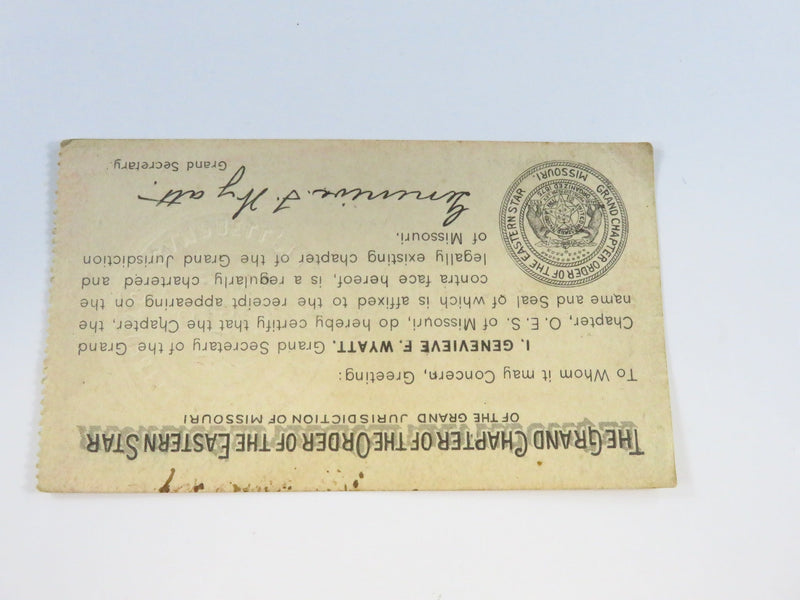 THE GRAND CHAPTER OF THE ORDER OF THE EASTERN STAR
OF THE GRAND JURISDICTION OF MISSOURI
To Whom it may Concern, Greeting:
I. GENEVIEVE F. WYATT. Grand Secretary of the Grand
Chapter, O. E. S. of Missouri, do hereby certify that the Chapter, the
name and Seal of which is affixed to the receipt appearing on the
contra face hereof, is a regularly chartered and
legally existing chapter of the Grand Jurisdiction
of Missouri.
Genevieve F. Wyatt.
Grand Secretary.
GRAND CHAPTER ORDER OF THE EASTERN STAR
MISSOURI.